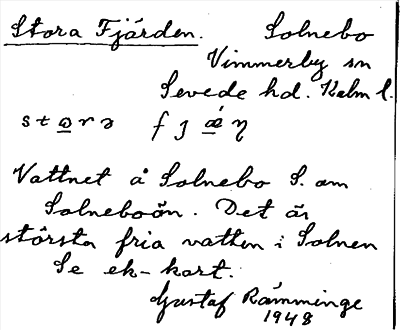 Stora Fjärden. Solnebo
Vimmerby sn
Sevede hd. Kalm l.
stɷrə fjǽŋ
Vattnet å Solnebo S. om
Solneboön. Det är
största fria vatten i Solnen
Se ek-kart.
Gustaf Ramminge
1948